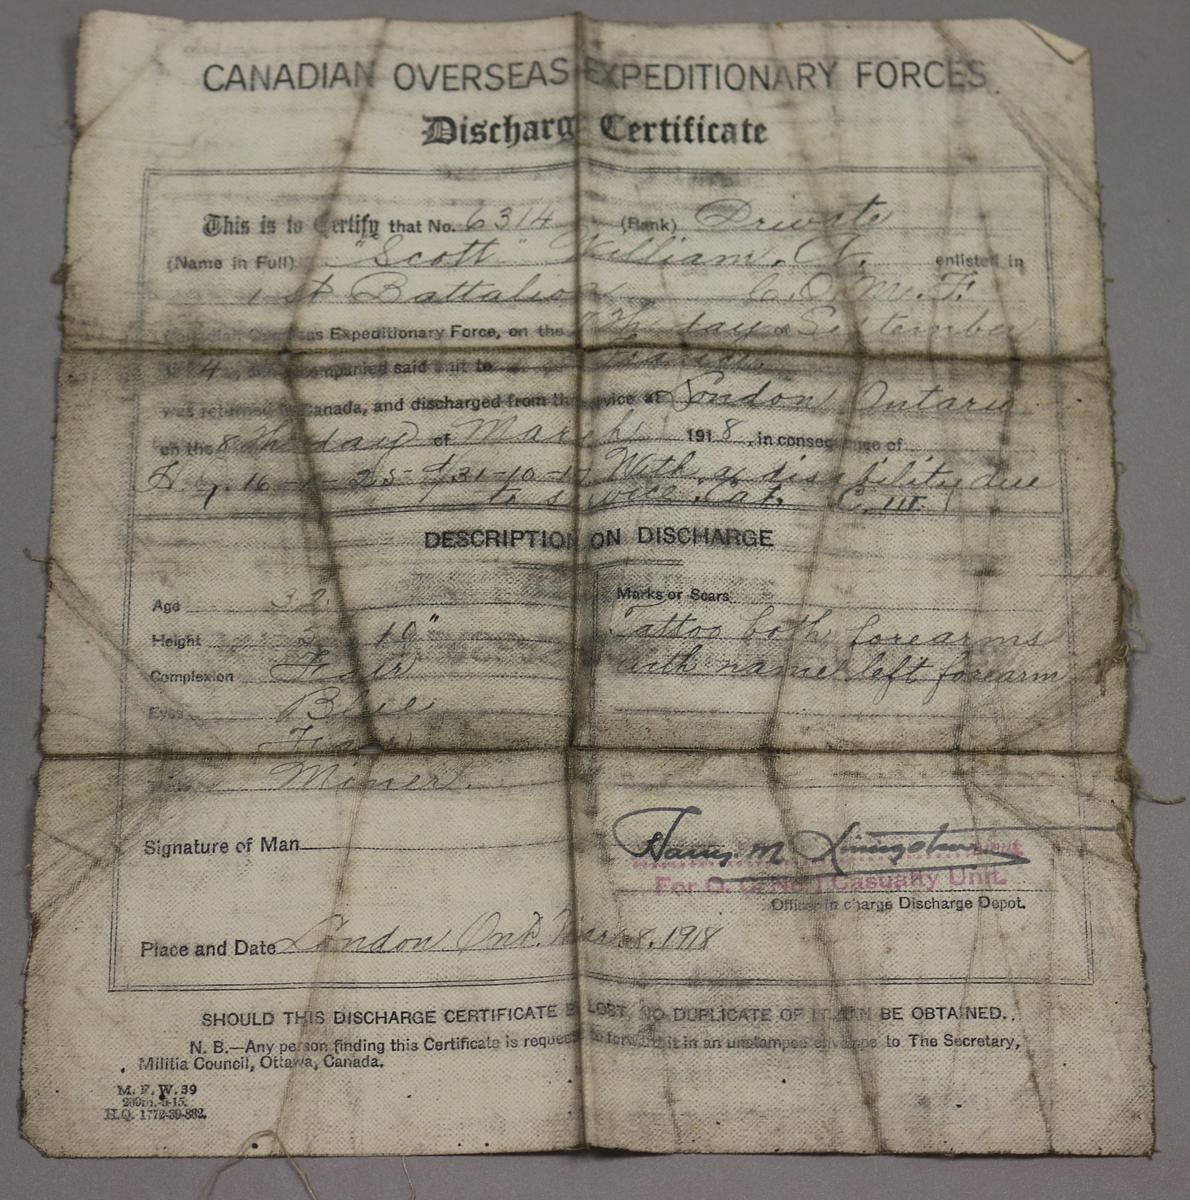 CANADIAN OVERSEAS EXPEDITIONARY FORCES
Discharge Certificate
This is to Certify that No. 6314 (Rank) Private
(Name in Full) "Scott" William. A. enlisted in
1st Battalion C.O.M.F.
Canadian Overseas Expeditionary Force, on the day of September
accompanied said unit to France.
was returned to Canada, and discharged from the service at London Ontario
on the 8th day of March 1918, in consequence of
16-1-25 31-10-17 With a disability due
to service. Cat. C. III.
DESCRIPTION ON DISCHARGE
Age 32
Height 5 10"
Complexion Fair
Eyes Blue
Fair
Miner.
Marks or Scars
Tattoo both forearms
with name left forearm
Signature of Man
Harry M Livingstone Lieut.
For O. C. No. 1 Casualty Unit.
Officer in charge Discharge Depot.
Place and Date London Ont. Mar 8, 1918
SHOULD THIS DISCHARGE CERTIFICATE BE LOST, NO DUPLICATE OF IT CAN BE OBTAINED.
N. B.—Any person finding this Certificate is requested to forward it in an unstamped envelope to The Secretary,
Militia Council, Ottawa, Canada.
M. F. W. 39
200m.-9-15.
H.Q. 1772-39-882.